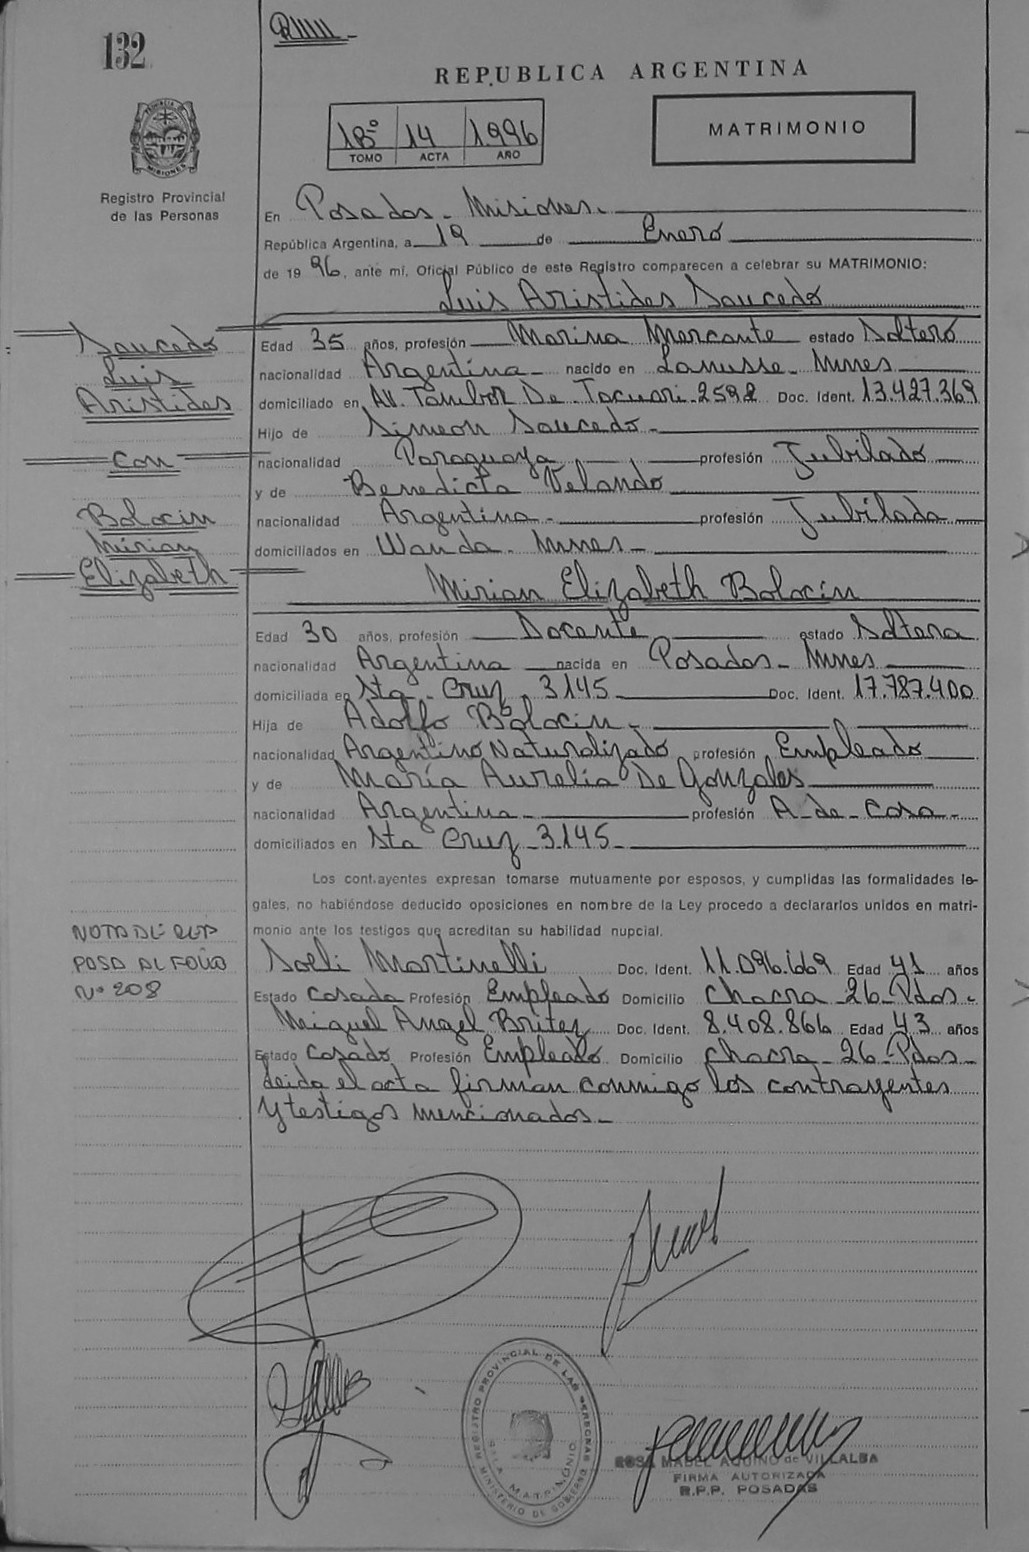 132
REPUBLICA ARGENTINA
18º 14 1996
TOMO ACTA AÑO
MATRIMONIO
Registro Provincial
de las Personas
En Posadas - Misiones.
República Argentina, a 19 de Enero
de 1996, ante mí, Oficial Público de este Registro comparecen a celebrar su MATRIMONIO:
Luis Aristides Saucedo
Saucedo
Luis
Aristides
con
Bolocin
Mirian
Elizabeth
Edad 35 años, profesión Marina Mercante estado Soltero
nacionalidad Argentina nacido en Lanusse - Mnes
domiciliado en AV. Tambor De Tacuari. 2592 Doc. Ident. 13.427.369
Hijo de Simeon Saucedo
nacionalidad Paraguaya profesión Jubilado
y de Benedicta Velando
nacionalidad Argentina profesión Jubilada
domiciliados en Wanda - Mnes
Mirian Elizabeth Bolocin
Edad 30 años, profesión Docente estado Soltera
nacionalidad Argentina nacida en Posadas - Mnes
domiciliada en Sta - Cruz 3145 Doc. Ident. 17.787.400
Hija de Adolfo Bolocin
nacionalidad Argentino Naturalizado profesión Empleado
y de María Aurelia De Gonzales
nacionalidad Argentina profesión A - de - casa
domiciliados en Sta Cruz - 3145
Los cont.ayentes expresan tomarse mutuamente por esposos, y cumplidas las formalidades le-
gales, no habiéndose deducido oposiciones en nombre de la Ley procedo a declararlos unidos en matri-
monio ante los testigos que acreditan su habilidad nupcial.
NOTA DE
PASA AL FOLIO
Nº 208
Soeli Martinelli Doc. Ident. 11.096.669 Edad 41 años
Estado Casada Profesión Empleado Domicilio Chacra 26 - Pdas -
Miguel Angel Britez Doc. Ident. 8.408.866 Edad 43 años
Estado Casado Profesión Empleado Domicilio Chacra - 26 - Pdas -
leida el acta firman conmigo los contrayentes
y testigos mencionados -
REGISTRO PROVINCIAL DE LAS PERSONAS
SALA MATRIMONIO
MINISTERIO DE GOBIERNO
ROSA MABEL AQUINO de VILLALBA
FIRMA AUTORIZADA
R.P.P. POSADAS